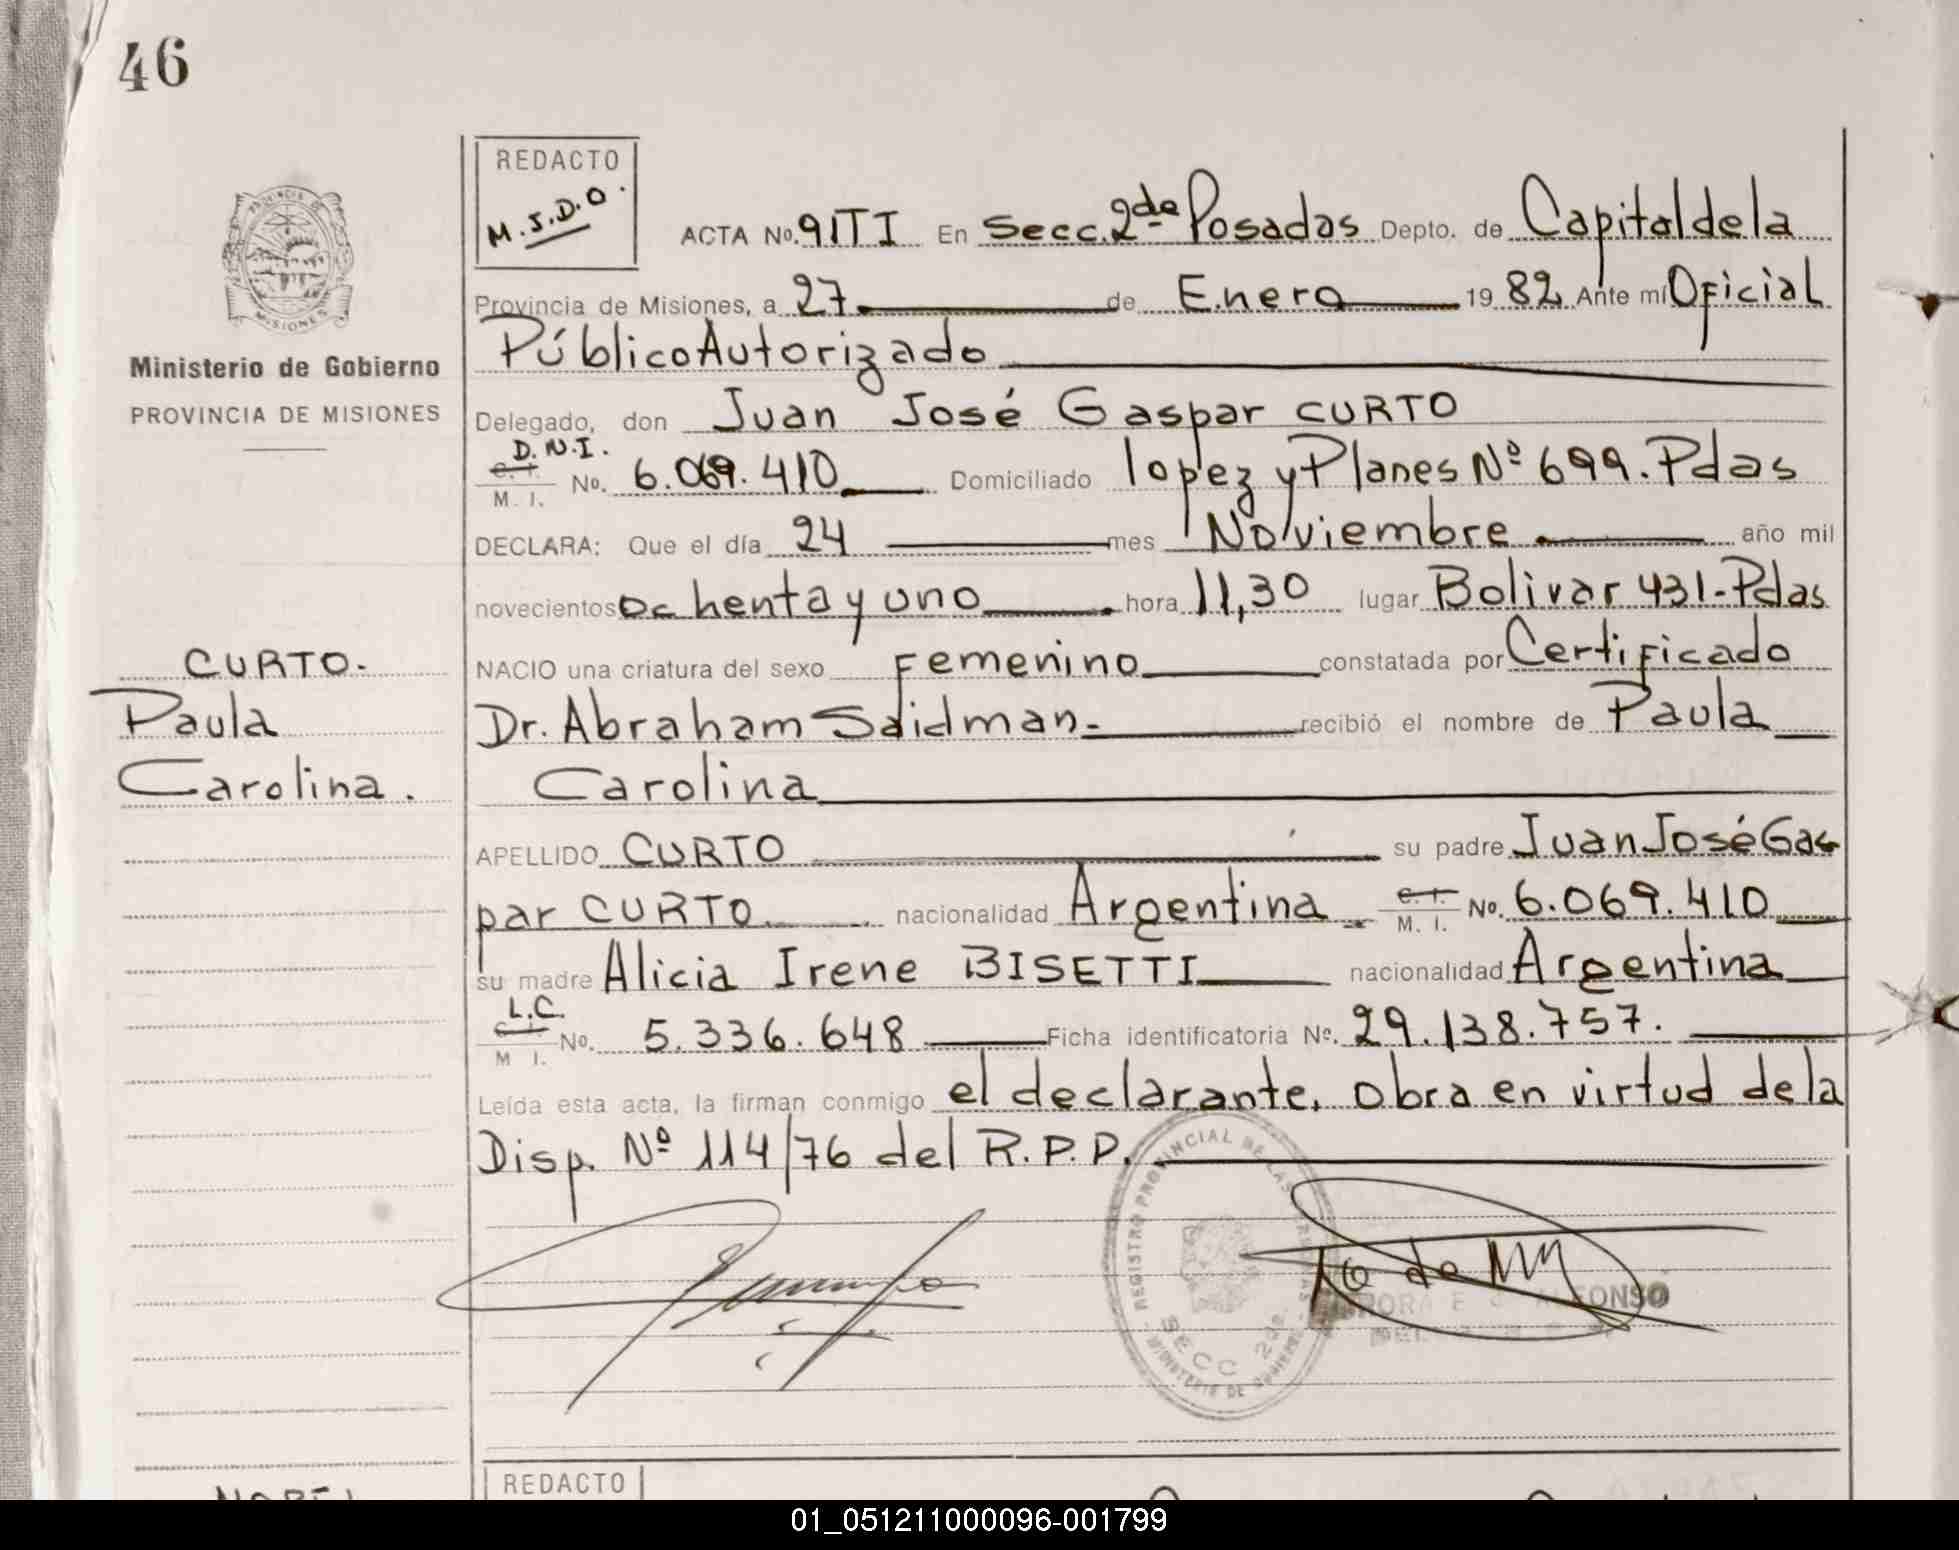 46
REDACTO
M.S.D.O.
ACTA No. 91TI En Secc. 2da Posadas Depto. de Capital de la
Provincia de Misiones, a 27 de Enero 19 82 Ante mí Oficial
Público Autorizado
Ministerio de Gobierno
PROVINCIA DE MISIONES
MISIONES
Delegado, don Juan José Gaspar CURTO
D.N.I.
C. I.
M. I. No. 6.069.410 Domiciliado lopez y Planes Nº 699. Pdas
DECLARA: Que el día 24 mes Noviembre año mil
novecientos ochenta y uno hora 11,30 lugar Bolivar 431-Pdas
CURTO.
Paula
Carolina.
NACIO una criatura del sexo Femenino constatada por Certificado
Dr. Abraham Saidman- recibió el nombre de Paula
Carolina
APELLIDO CURTO su padre Juan José Gas
par CURTO nacionalidad Argentina C. I. M. I. No. 6.069.410
su madre Alicia Irene BISETTI nacionalidad Argentina
L.C.
C. I.
M I. No. 5.336.648 Ficha identificatoria Nº. 29.138.757.
Leída esta acta, la firman conmigo el declarante, obra en virtud de la
Disp. Nº 114/76 del R.P.P.
REGISTRO PROVINCIAL DE LAS
SECC 2da.
MINISTERIO DE GOBIERNO
ALFONSO
REDACTO
01_051211000096-001799